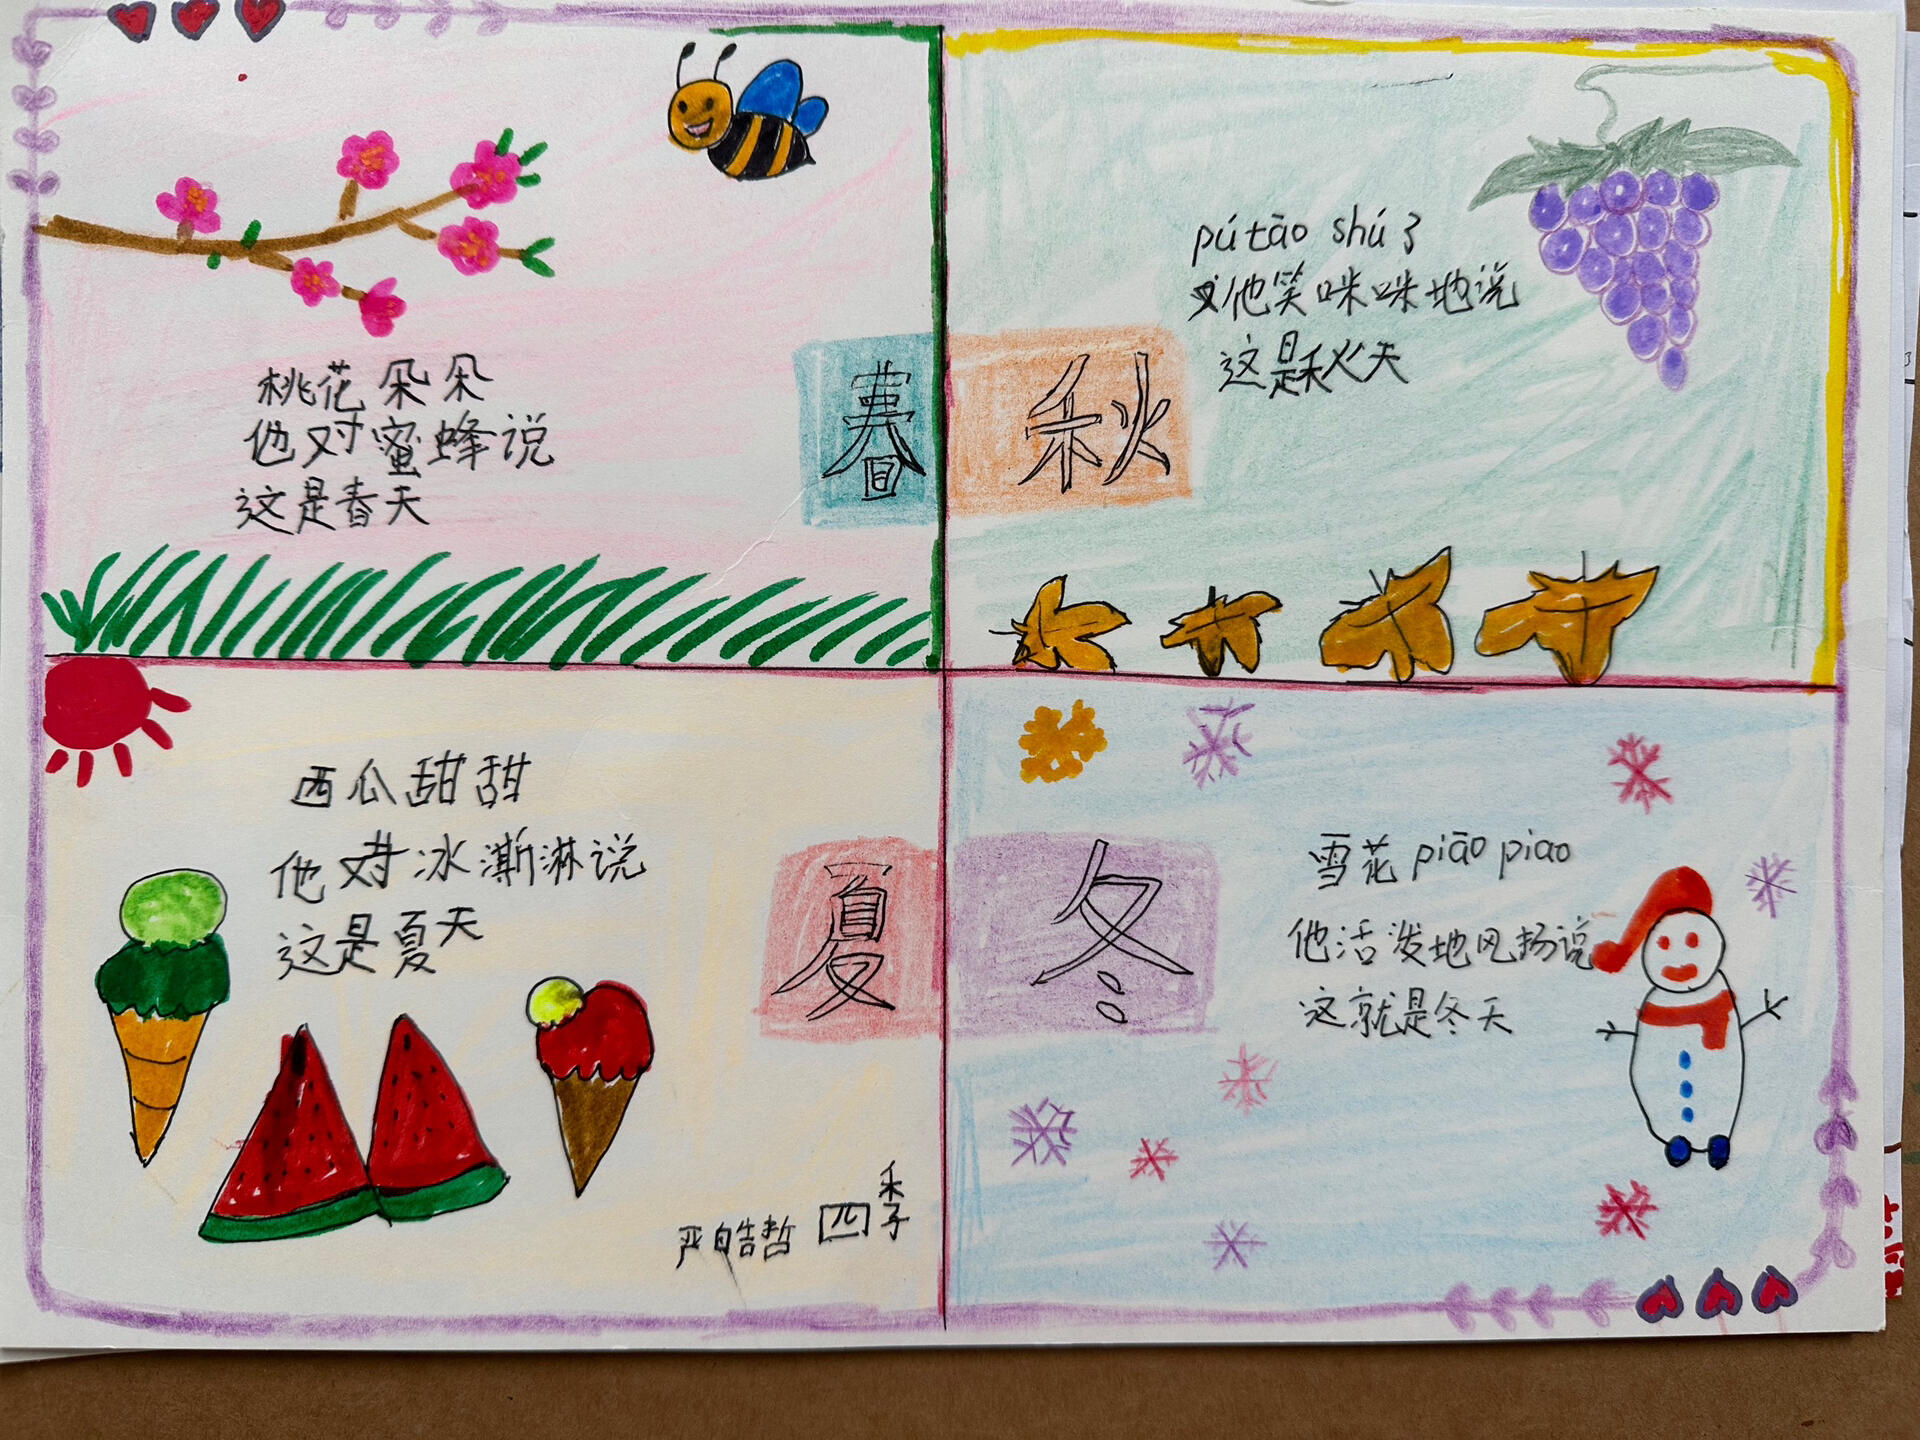 桃花朵朵
他对蜜蜂说
这是春天
春
pútāo shú了
他笑咪咪地说
这是秋天
秋
西瓜甜甜
他对冰澌淋说
这是夏天
夏
严皓哲 四季
雪花piāo piao
他活泼地风扬说
这就是冬天
冬